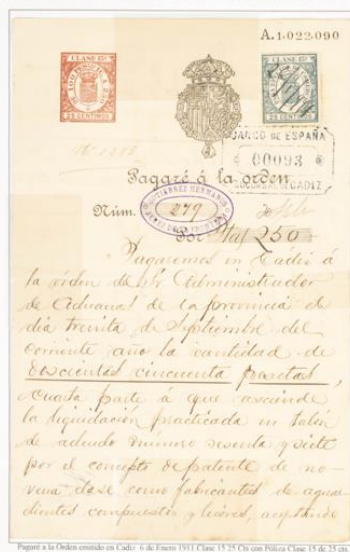 A.1.022.090
CLASE 15ª
25 CENTIMOS
CLASE 15ª
25 CENTIMOS
BANCO DE ESPAÑA
00093
SUCURSAL DE CADIZ
Pagaré á la orden
GUTIERREZ HERMANOS
Núm. 279
Por Ptas 250
Pagaremos en Cadiz á
la orden del Sr Administrador
de Aduanas de la provincia el
dia treinta de Septiembre del
corriente año la cantidad de
doscientas cincuenta pesetas,
cuarta parte á que asciende
la liquidación practicada en talón
de adeudo número sesenta y siete
por el concepto de patente de no-
vena clase como fabricantes de aguar-
dientes compuestos y licores, aceptando
Pagaré a la Orden emitido en Cadiz 6 de Enero 1911 Clase 15 25 Cts con Póliza Clase 15 de 25 cts